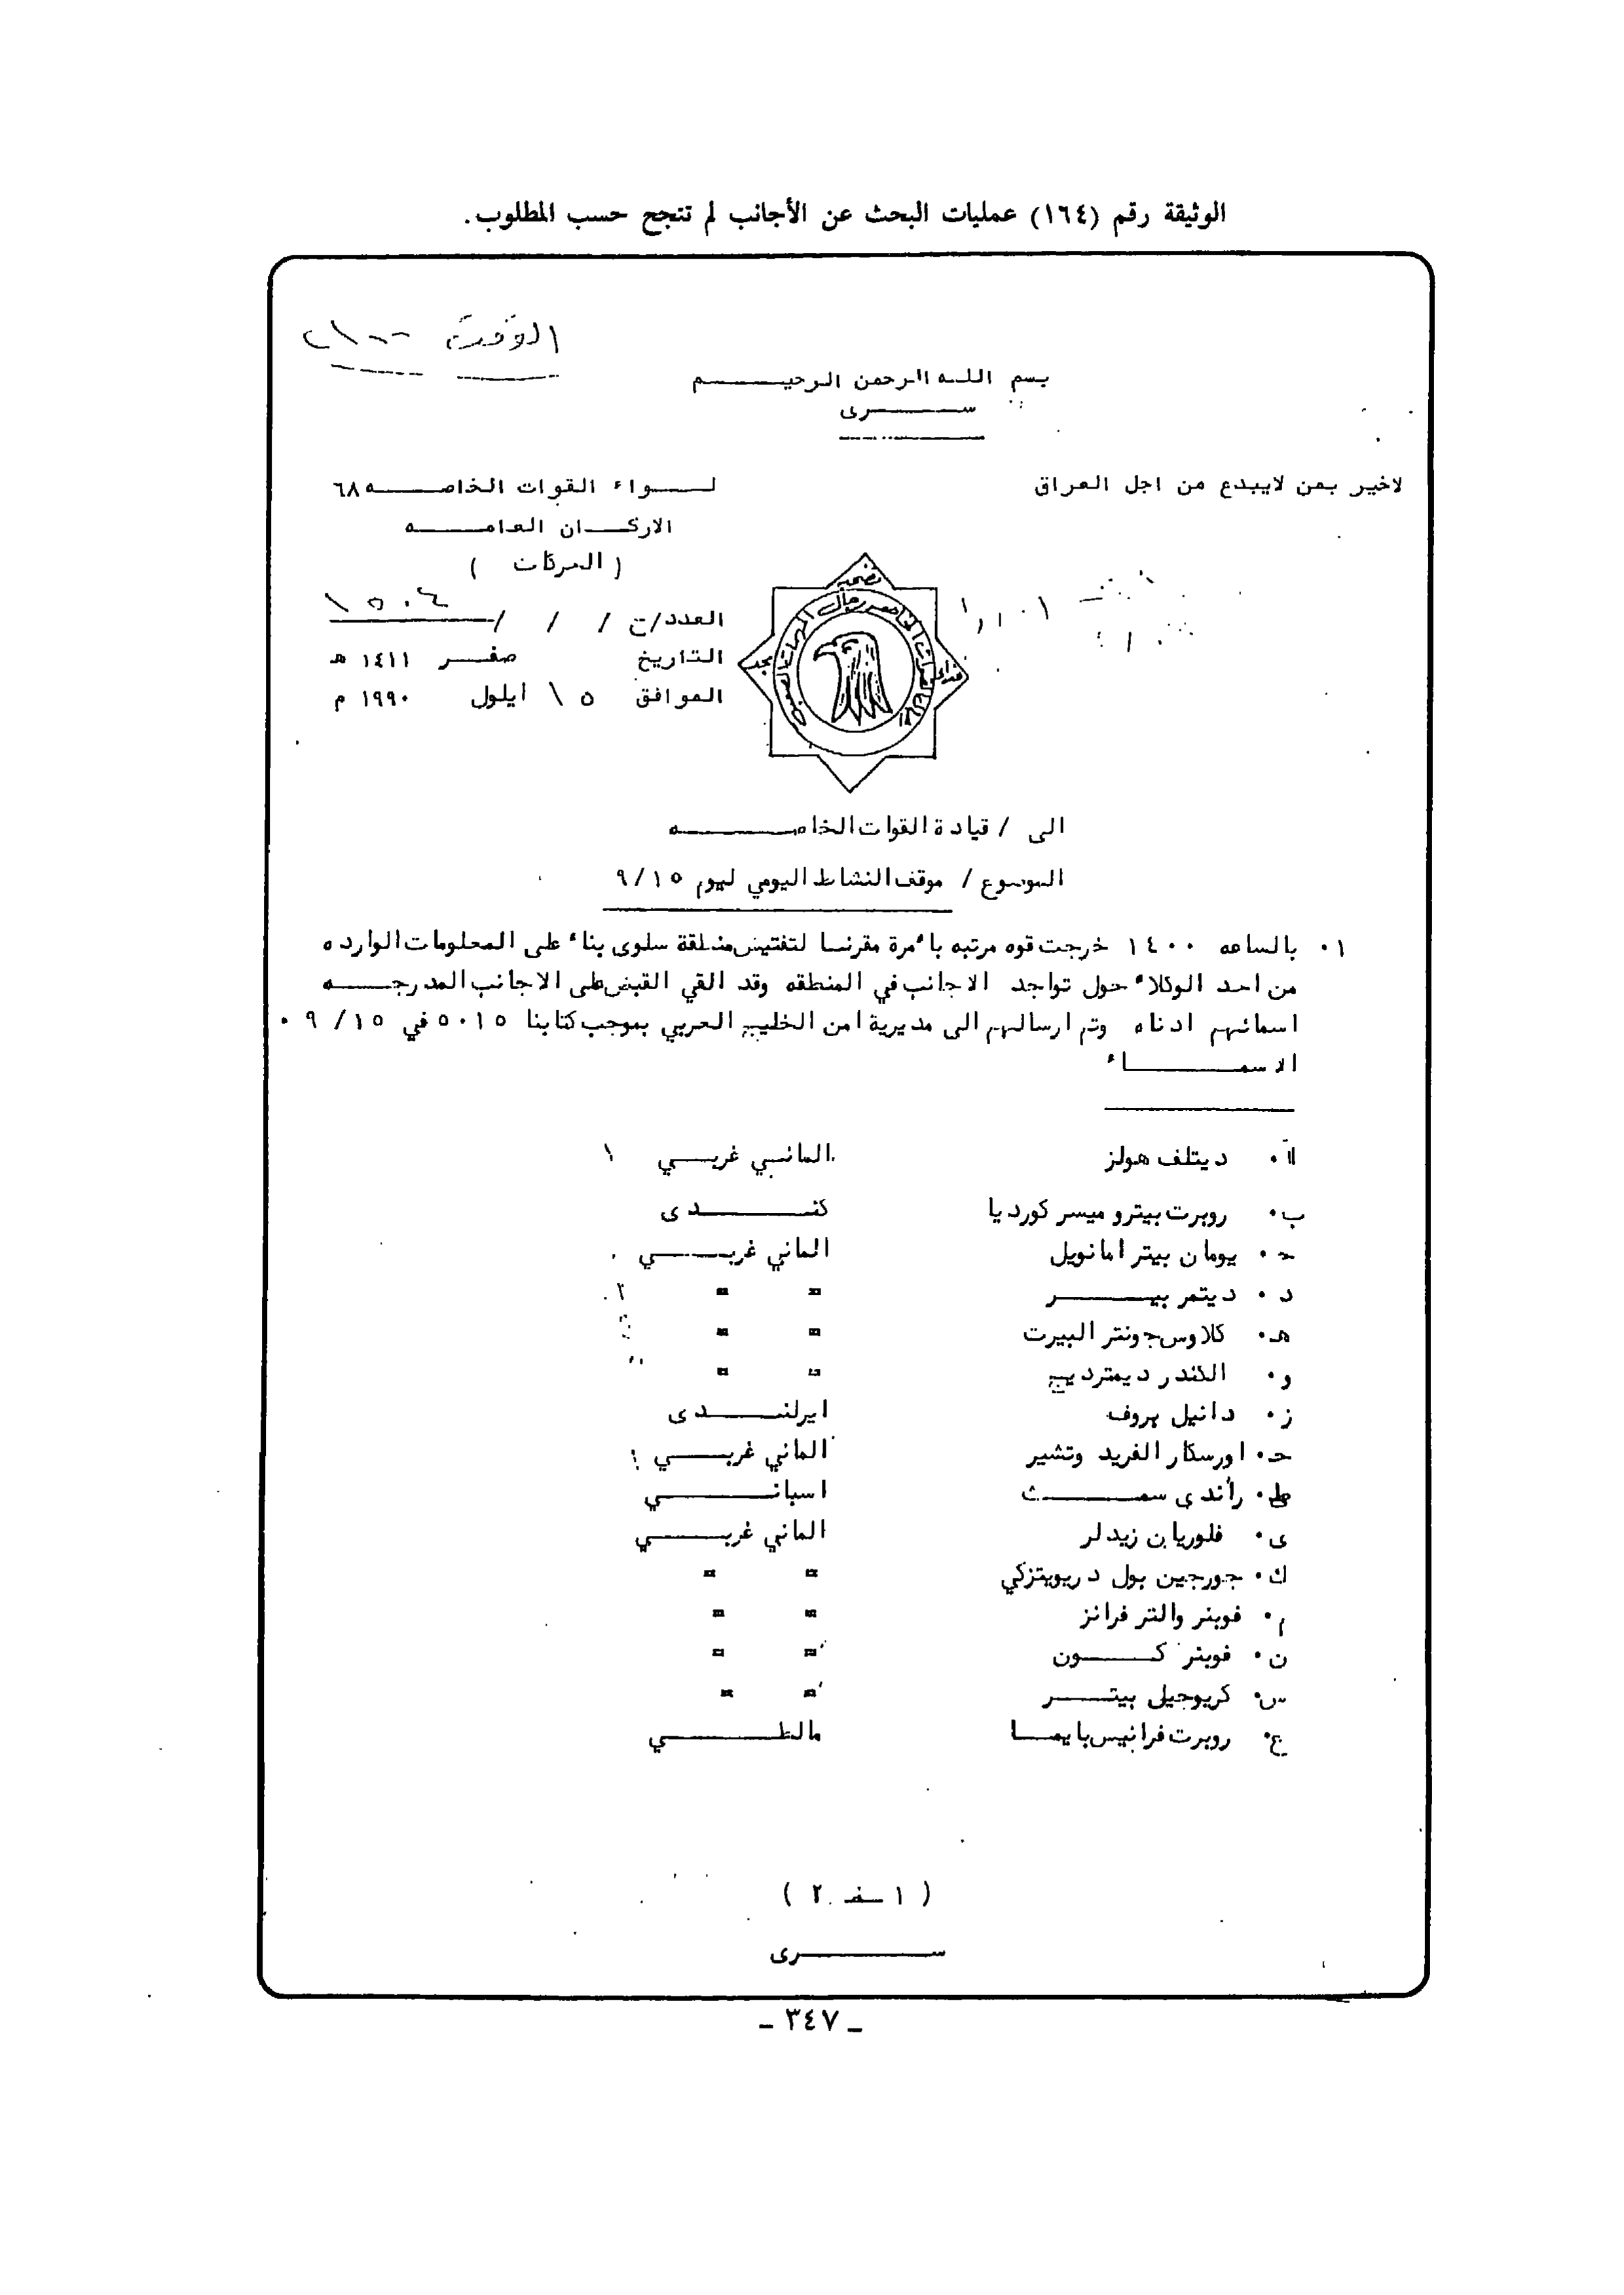 الوثيقة رقم (١٦٤) عمليات البحث عن الأجانب لم تنجح حسب المطلوب.
الوقت
بسم اللـه الرحمن الرحيـــم
ســـرى
لاخير بمن لايبدع من اجل العراق
لـــواء القوات الخاصـــه ٦٨
الاركــان العامـــه
( الحركات )
العدد/ح / / / ١٥٠٤
التاريخ صفــر ١٤١١ هـ
الموافق ١٥ ايلول ١٩٩٠ م
الى / قيادة القوات الخاصـــه
الموضوع / موقف النشاط اليومي ليوم ٩/١٥
١٠ بالساعه ١٤٠٠ خرجت قوه مرتبه بأمرة مقرنا لتفتيش منطقة سلوى بناء على المعلومات الوارده
من احد الوكلاء حول تواجد الاجانب في المنطقه وقد القي القبض على الاجانب المدرجـــه
اسمائهم ادناه وتم ارسالهم الى مديرية امن الخليج العربي بموجب كتابنا ٥٠١٥ في ٩/١٥ ٠
الاسمـــاء
أ٠ ديتلف هولز الماني غربــي ١
ب٠ روبرت بيترو ميسر كورديا كنـــدى
ج٠ يومان بيتر امانويل الماني غربــي
د٠ ديتمر بيـــر " "
هـ٠ كلاوس جونتر البيرت " "
و٠ الكندر ديمترديج " "
ز٠ دانيل بروف ايرلنـــدى
حـ٠ اورسكار الفريد وتشير الماني غربــي
ط٠ راندى سمـــث اسبانـــي
ى٠ فلوريان زيدلر الماني غربـــي
ك٠ جورجين بول دريويتزكي " "
م٠ فوبنر والتر فرانز " "
ن٠ فوبنر كـــون " "
س٠ كريوجيلى بيتـــر " "
ع٠ روبرت فرانيس بايمـــا مالطـــي
( ١ ــفـ ٢ )
ســـرى
ـ ٣٤٧ ـ